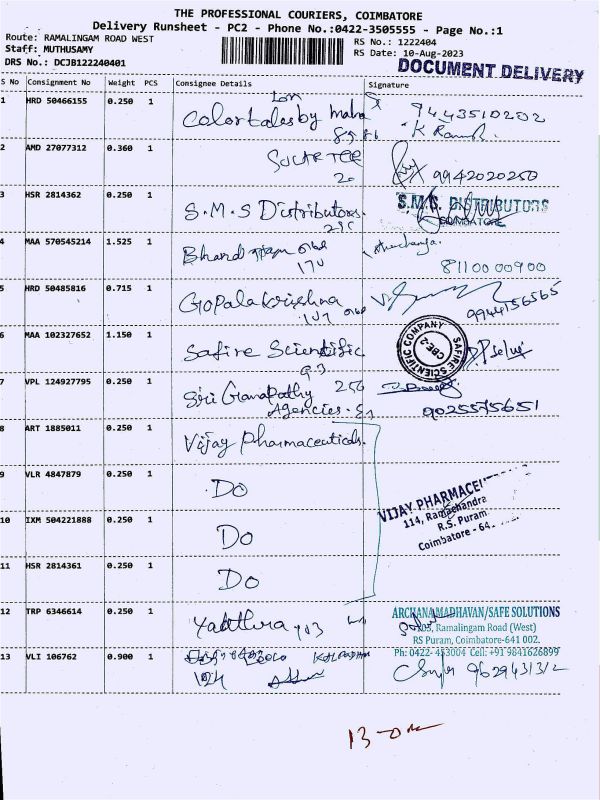 THE PROFESSIONAL COURIERS, COIMBATORE
Delivery Runsheet - PC2 - Phone No.:0422-3505555 - Page No.:1
Route: RAMALINGAM ROAD WEST
Staff: MUTHUSAMY
DRS No.: DCJB122240401
RS No.: 1222404
RS Date: 10-Aug-2023
DOCUMENT DELIVERY
S No Consignment No Weight PCS Consignee Details Signature
1 HRD 50466155 0.250 1 Colortales by 9443510202
K Ramesh
2 AMD 27077312 0.360 1
20 9942020250
3 HSR 2814362 0.250 1 S.M.S Distributors. S.M.S. DISTRIBUTORS
COIMBATORE
4 MAA 570545214 1.525 1 Bhand
170 8110000900
5 HRD 50485816 0.715 1 Gopalakrishna 9944156565
6 MAA 102327652 1.150 1 Safire Scientific SAFIRE SCIENTIFIC COMPANY CBE-2 Selvi
93
7 VPL 124927795 0.250 1 Sri Ganapathy 256
Agencies. 9025575651
8 ART 1885011 0.250 1 Vijay Pharmaceuticals.
9 VLR 4847879 0.250 1 Do
VIJAY PHARMACE
114, Ramachandra
R.S. Puram
Coimbatore - 64
10 IXM 504221888 0.250 1 Do
11 HSR 2814361 0.250 1 Do
12 TRP 6346614 0.250 1 403
ARCHANA MADHAVAN/SAFE SOLUTIONS
403, Ramalingam Road (West)
RS Puram, Coimbatore-641 002.
Ph: 0422- 453004 Cell: +91 9841626899
13 VLI 106762 0.900 1 9629431312
124
13